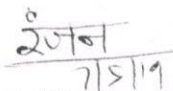 रंजन
7/5/19